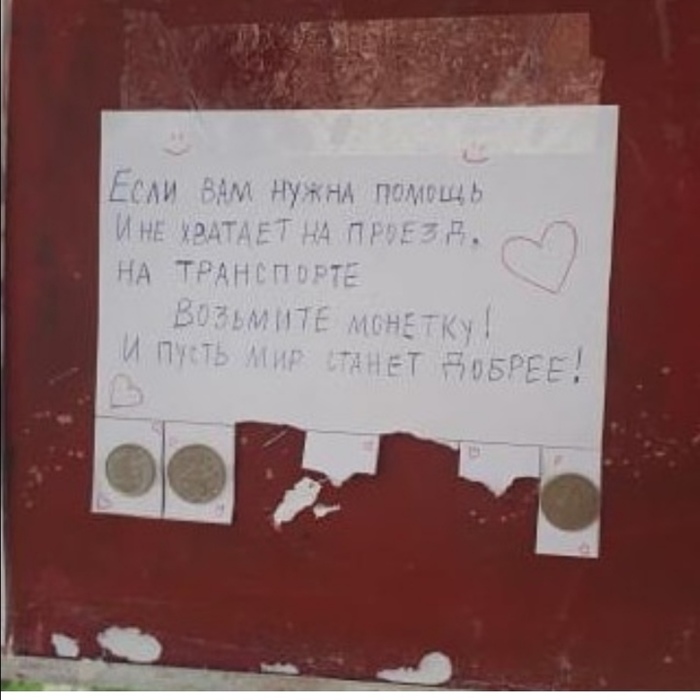 Если вам нужна помощь
И не хватает на проезд.
на транспорте
возьмите монетку!
И пусть мир станет добрее!